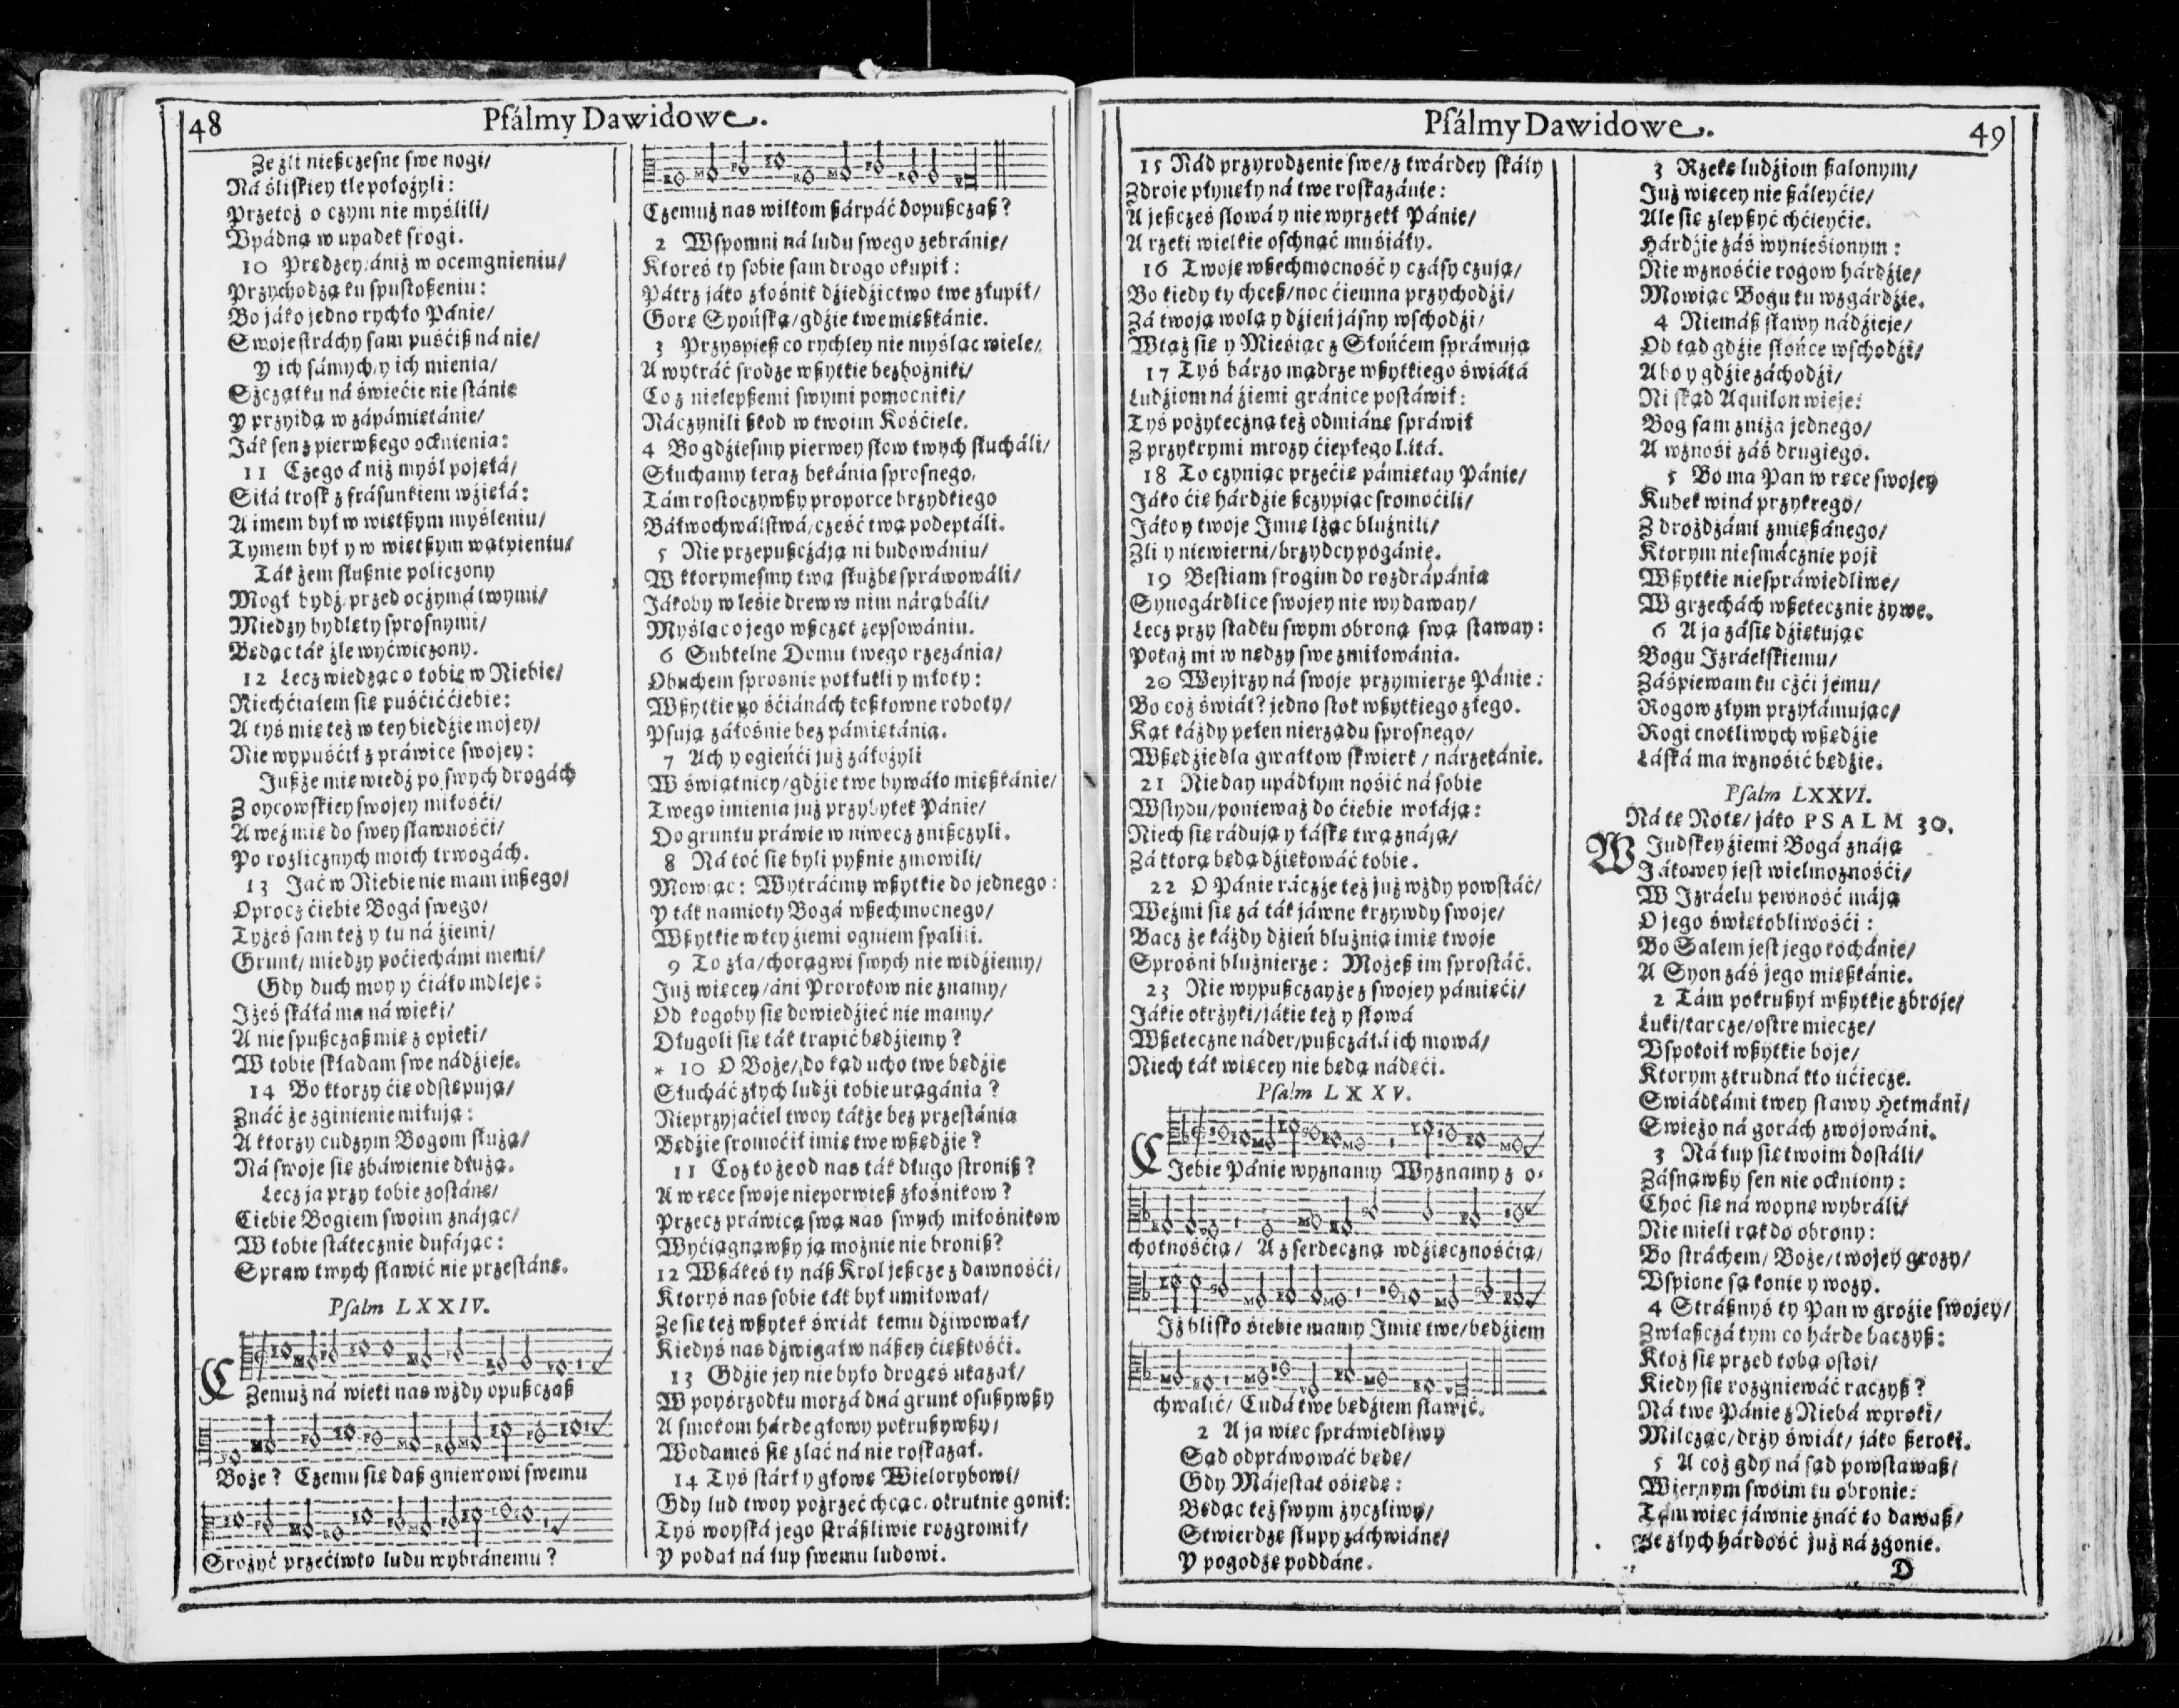 48
Psálmy Dawidowe.
Że źli nießczesne swe nogi/
Ná śliskiey tle położyli:
Przetoż o czym nie myślili/
Vpádną w upadek srogi.
10 Prędzey/ániż w ocemgnieniu/
Przychodzą ku spustoßeniu:
Bo jáko jedno rychło Pánie/
Swoje stráchy sam puśćiß ná nie/
Y ich sámych/y ich mienia/
Szczątku ná świećie nie stánie
Y przyidą w zápámiętánie/
Ják sen z pierwßego ocknienia:
11 Czego á niż myśl pojęłá/
Siłá trosk z frásunkiem wźięłá:
A imem był w więtßym myśleniu/
Tymem był y w więtßym wątpieniu/
Ták żem słußnie policzony
Mogł bydź przed oczymá twymi/
Miedzy bydlęty sprosnymi/
Będąc ták źle wyćwiczony.
12 Lecz wiedząc o tobie w Niebie/
Niechćiałem się puśćić ćiebie:
A tyś mię też w tey biedźie mojey/
Nie wypuśćił z práwice swojey:
Jußże mię wiedź po swych drogách
Z oycowskiey swojey miłośći/
A weź mię do swey sławnośći/
Po rozlicznych moich trwogách.
13 Jać w Niebie nie mam inßego/
Oprocz ćiebie Bogá swego/
Tyżeś sam też y tu ná źiemi/
Grunt/ miedzy poćiechámi memi/
Gdy duch moy y ćiáło mdleje:
Jżeś skáłá ma ná wieki/
A nie spußczaß mię z opieki/
W tobie składam swe nádźieje.
14 Bo ktorzy ćię odstępują/
Znáć że zginienie miłują:
A ktorzy cudzym Bogom służą/
Ná swoje się zbáwienie dłużą.
Lecz ja przy tobie zostánę/
Ciebie Bogiem swoim znájąc/
W tobie státecznie dufájąc:
Spraw twych sławić nie przestánę.
Psalm LXXIV.
CZemuż ná wieki nas wżdy opußczaß
Boże? Czemu się daß gniewowi swemu
Srożyć przećiwko ludu wybránemu?
Czemuż nas wilkom ßárpáć dopußczaß?
2 Wspomni ná ludu swego zebránie/
Ktoreś ty sobie sam drogo okupił:
Pátrz jáko złośnik dźiedźictwo twe złupił/
Gorę Syońską/gdźie twe mießkánie.
3 Przyspieß co rychley nie myśląc wiele/
A wytráć srodze wßytkie bezbożniki/
Co z nielepßemi swymi pomocniki/
Náczynili ßkod w twoim Kośćiele.
4 Bo gdźiesmy pierwey słow twych słucháli/
Słuchamy teraz bekánia sprosnego,
Tám rostoczywßy proporce brzydkiego
Báłwochwálstwá/cześć twą podeptáli.
5 Nie przepußczájá ni budowániu/
W ktorymesmy twą służbę spráwowáli/
Jákoby w leśie drew w nim nárąbáli/
Myśląc o jego wßczęt zepsowániu.
6 Subtelne Domu twego rzezánia/
Obuchem sprosnie potłukli y młoty:
Wßytkie po śćiánách koßtowne roboty/
Psują żáłośnie bez pámiętánia.
7 Ach y ogieńći już záłożyli
W świątnicy/gdźie twe bywáło mießkánie/
Twego imienia już przybytek Pánie/
Do gruntu práwie w niwecz znißczyli.
8 Ná toć się byli pyßnie zmowili/
Mowiąc: Wytráćmy wßytkie do jednego:
Y ták namioty Bogá wßechmocnego/
Wßytkie w tey źiemi ogniem spalili.
9 To zła/chorągwi swych nie widźiemy/
Już więcey/áni Prorokow nie znamy/
Od kogoby się dowiedźieć nie mamy/
Długoli się ták trapić będźiemy?
* 10 O Boże/do kąd ucho twe będźie
Słucháć złych ludźi tobie urągánia?
Nieprzyjaćiel twoy tákże bez przestánia
Będźie sromoćił imię twe wßędźie?
11 Coż to że od nas ták długo stroniß?
A w ręce swoje nieporwieß złośnikow?
Przecz práwicą swą nas swych miłośnikow
Wyćiągnąwßy ją możnie nie broniß?
12 Wßákeś ty náß Krol jeßcze z dawnośći/
Ktoryś nas sobie ták był umiłował/
Że się też wßytek świát temu dźiwował/
Kiedyś nas dźwigał w náßey ćięßkośći.
13 Gdźie jey nie było drogęś ukazał/
W poyśrzodku morzá dná grunt osußywßy
A smokom hárde głowy pokrußywßy/
Wodameś się zlać ná nie roskazał.
14 Tyś stárł y głowę Wielorybowi/
Gdy lud twoy pożrzeć chcąc, okrutnie gonił:
Tyś woyská jego stráßliwie rozgromił/
Y podał ná łup swemu ludowi.
Psálmy Dawidowe.
49
15 Nád przyrodzenie swe/z twárdey skáły
Zdroje płynęły ná twe roskazánie:
A jeßcześ słowá y nie wyrzekł Pánie/
A rzeki wielkie oschnąć muśiáły.
16 Twoję wßechmocność y czásy czują/
Bo kiedy ty chceß/noc ćiemna przychodźi/
Zá twoją wolą y dźień jásny wschodźi/
Wtąż się y Mieśiąc z Słońćem spráwują
17 Tyś bárzo mądrze wßytkiego świátá
Ludźiom ná źiemi gránice postáwił:
Tyś pożyteczną też odmiánę spráwił
Z przykrymi mrozy ćiepłego látá.
18 To czyniąc przećię pámiętay Pánie/
Jáko ćię hárdźie ßczypiąc sromoćili/
Jáko y twoje Jmię lżąc bluźnili/
Zli y niewierni/brzydcy pogánie.
19 Bestiam srogim do rozdrápánia
Synogárdlice swojey nie wydaway/
Lecz przy stadku swym obroną swą staway:
Pokaż mi w nędzy swe zmiłowánia.
20 Weyirzy ná swoje przymierze Pánie:
Bo coż świát? jedno stok wßytkiego złego.
Kąt káżdy pełen nierządu sprosnego/
Wßędźie dla gwałtow skwierk/ nárzekánie.
21 Nieday upádłym nośić ná sobie
Wstydu/ponieważ do ćiebie wołáją:
Niech się rádują y łáskę twą znáją/
Zá ktorą będą dźiękowáć tobie.
22 O Pánie ráczże też już wżdy powstáć/
Weźmi się zá ták jáwne krzywdy swoje/
Bacz że káżdy dźień bluźnią imię twoje
Sprośni bluźnierze: Możeß im sprostáć.
23 Nie wypußczayże z swojey pámięći/
Jákie okrżyki/jákie też y słowá
Wßeteczne náder/pußczáłá ich mowá/
Niech ták więcey nie będą nádęći.
Psalm LXXV.
CJebie Pánie wyznamy Wyznamy z o-
chotnośćią/ A z serdeczną wdźięcznośćią/
Jż blisko śiebie mamy Jmię twe/będźiem
chwalić/ Cudá twe będźiem sławić.
2 A ja więc spráwiedliwy
Sąd odpráwowáć będę/
Gdy Májestat ośiędę:
Będąc też swym życzliwy/
Stwierdzę słupy záchwiáne/
Y pogodzę poddáne.
3 Rzekę ludźiom ßalonym/
Już więcey nie ßáleyćie/
Ale się zlepßyć chćieyćie.
Hárdźie záś wynieśionym:
Nie wznośćie rogow hárdźie/
Mowiąc Bogu ku wzgárdźie.
4 Niemáß sławy nádźieje/
Od tąd gdźie słońce wschodźi/
Abo y gdźie záchodźi/
Ni skąd Aquilon wieje:
Bog sam zniża jednego/
A wznośi záś drugiego.
5 Bo ma Pan w ręce swojey
Kubek winá przykrego/
Z drożdżámi zmießánego/
Ktorym niesmácznie poji
Wßytkie niespráwiedliwe/
W grzechách wßetecznie żywe.
6 A ja záśię dźiękując
Bogu Jzráelskiemu/
Záśpiewam ku czći jemu/
Rogow złym przyłámując/
Rogi cnotliwych wßędźie
Łáská ma wznośić będźie.
Psalm LXXVI.
Ná tę Notę/ jáko PSALM 30.
W Judskey źiemi Bogá znáją
Jákowey jest wielmożnośći/
W Jzráelu pewność máją
O jego świętobliwośći:
Bo Salem jest jego kochánie/
A Syon záś jego mießkánie.
2 Tám pokrußył wßytkie zbroje/
Łuki/tarcze/ostre miecze/
Vspokoił wßytkie boje/
Ktorym z trudná kto ućiecze.
Swiádkámi twey sławy Hetmáni/
Swieżo ná gorách zwojowáni.
3 Ná łup się twoim dostáli/
Zásnąwßy sen nie ockniony:
Choć się ná woynę wybráli/
Nie mieli rąk do obrony:
Bo stráchem/ Boże/twojey grozy/
Vspione są konie y wozy.
4 Stráßnyś ty Pan w groźie swojey/
Zwłaßczá tym co hárde baczyß:
Ktoż się przed tobą ostoi/
Kiedy się rozgniewáć raczyß?
Ná twe Pánie z Niebá wyroki/
Milcząc/drży świát/ jáko ßeroki.
5 A coż gdy ná sąd powstawaß/
Wiernym swoim ku obronie:
Tám więc jáwnie znáć to dawaß/
Że złych hárdość już ná zgonie.
D